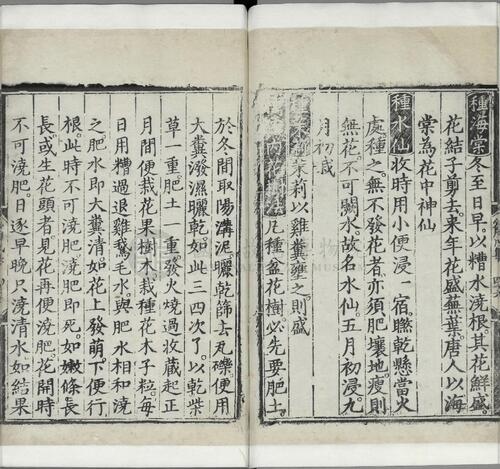 種海棠 冬至日早。以糟水澆根。其花鮮盛。
花結子剪去。來年花盛蕪葉唐人以海
棠為花中神仙
種水仙 收時用小便浸一宿。㬠乾懸當火
處種之。無不發花者。亦須肥壤地。瘦則
無花。不可闕水。故名水仙。五月初浸。九
月初栽
茉莉以雞糞壅之。則盛
凡種盆花樹。必先要肥土。
於冬間取陽溝泥。曬乾篩去瓦礫。便用
大糞潑濕曬乾。如此三四次了。以乾柴
草一重。肥土一重。發火燒過。收藏起。正
月間便栽花果樹木。栽種花木子粒。每
日用糟過退雞鵞毛水。與肥水相和澆
之。肥水即大糞清。如花上發萌。下便行
根。此時不可澆肥。澆肥即死。如嫩條長
長。或生花頭者。見花再便澆肥。花開時
不可澆肥。日逐早晚只澆清水。如結果